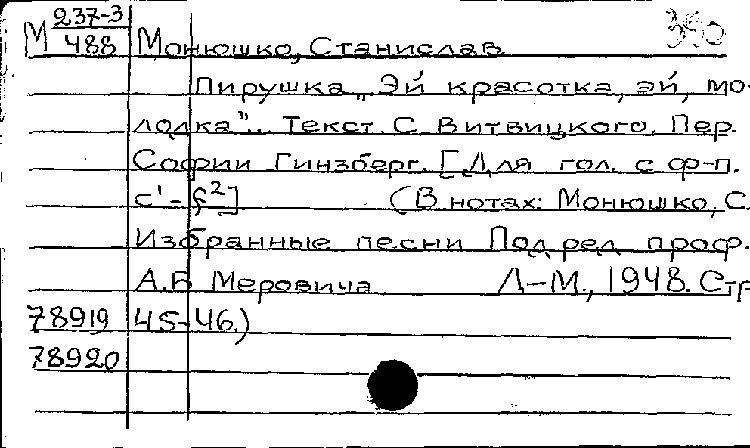 М 237-3/488 Монюшко, Станислав 350
Пирушка „Эй красотка, эй, мо-
лодка". Текст С. Витвицкого. Пер.
Софии Гинзберг. [Для гол. с ф-п.
c¹-f²] (В нотах: Монюшко, С.
Избранные песни Под ред. проф.
А.Б Меровича Л-М., 1948. Стр
78919 45-46.)
78920